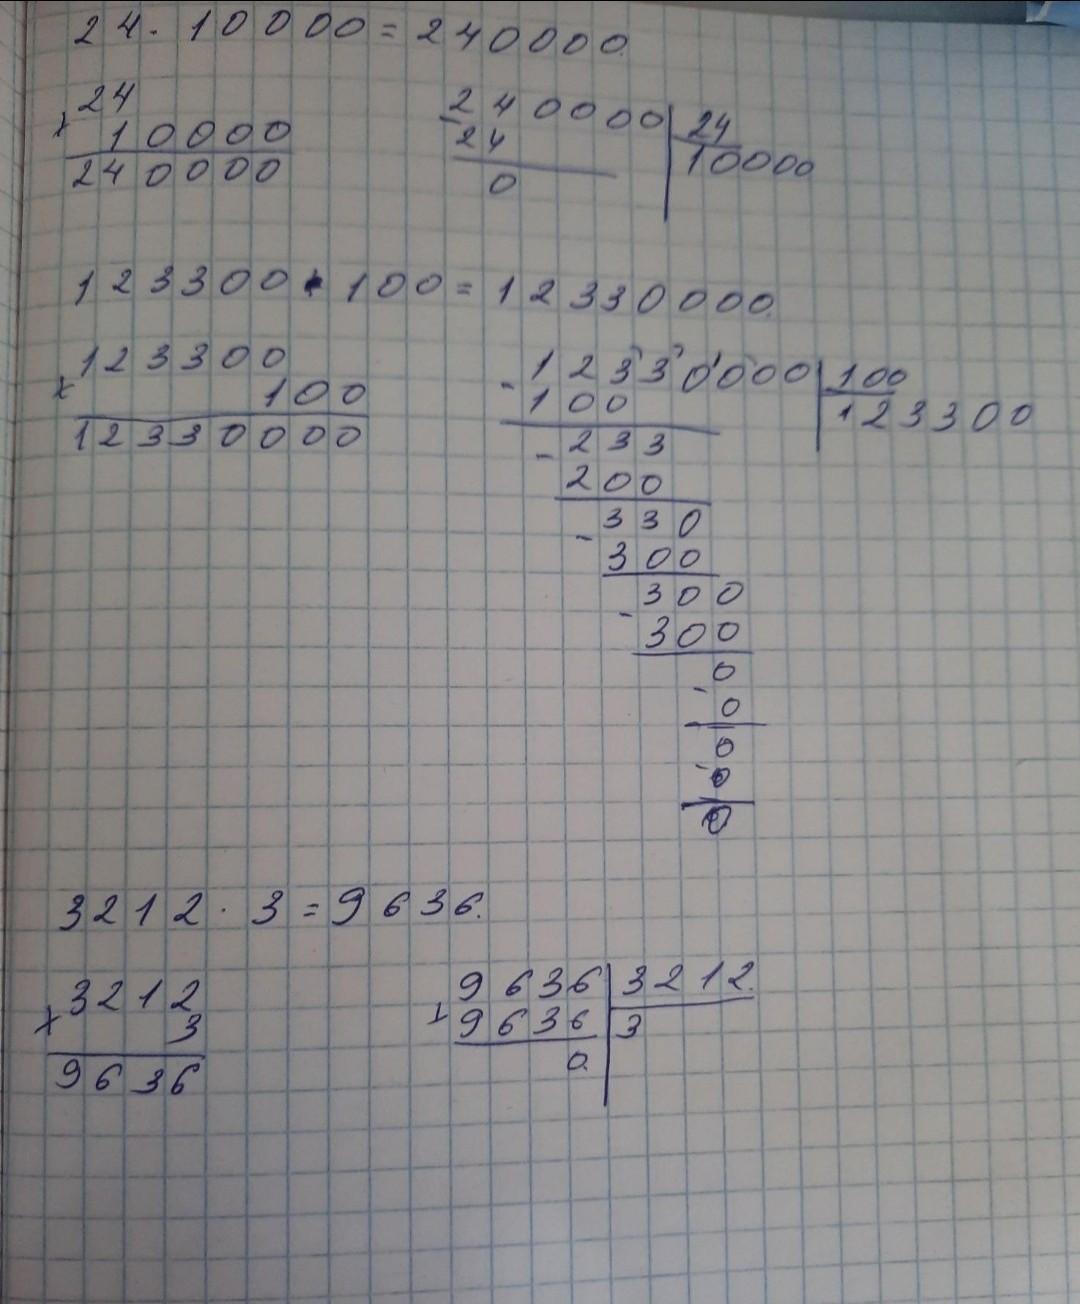 24 · 10000 = 240000.
24
× 10000
240000
- 240000 | 24
24 | 10000
0
123300 · 100 = 12330000.
123300
× 100
12330000
- 12330000 | 100
100 | 123300
- 233
200
- 330
300
- 300
300
0
- 0
0
- 0
0
3212 · 3 = 9636.
3212
× 3
9636
- 9636 | 3212.
9636 | 3
0.